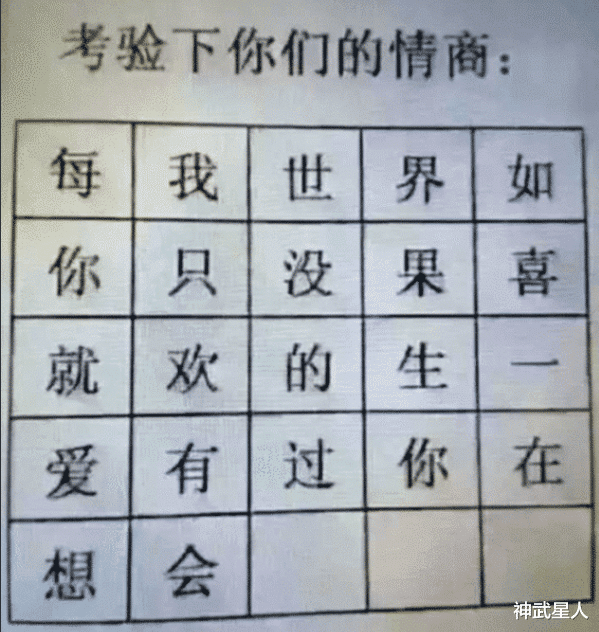 考验下你们的情商：
每 我 世 界 如
你 只 没 果 喜
就 欢 的 生 一
爱 有 过 你 在
想 会
神武星人